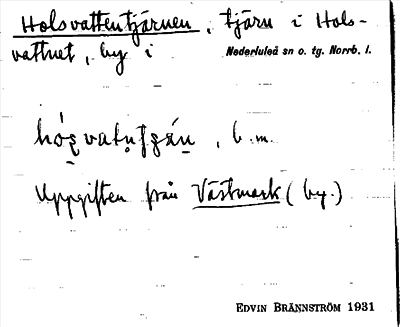 Holsvattentjärnen, tjärn i Hols-
vattnet, by i Nederluleå sn o. tg. Norrb. l.
b. m.
Uppgiften från Västmark (by.)
EDVIN BRÄNNSTRÖM 1931